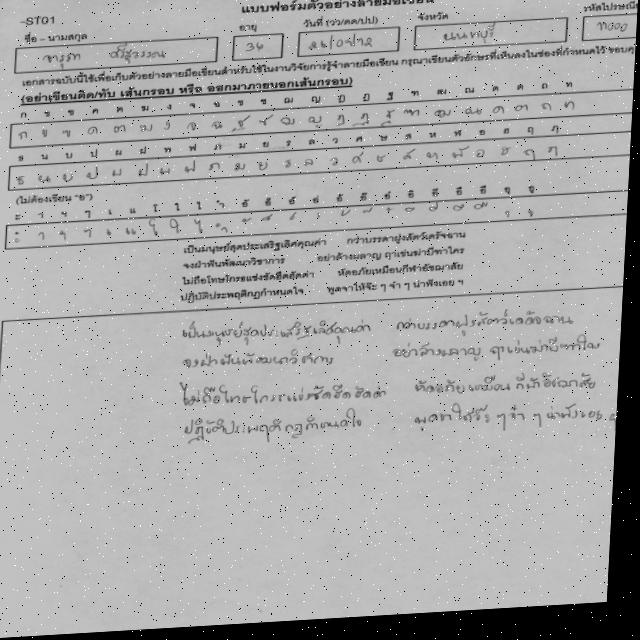 แบบฟอร์มตัวอย่างลายมือเขียน
-ST01
ชื่อ - นามสกุล อายุ วันที่ (วว/ดด/ปป) จังหวัด รหัสไปรษณีย์
34 นนทบุรี
เอกสารฉบับนี้ใช้เพื่อเก็บตัวอย่างลายมือเขียนสำหรับใช้ในงานวิจัยการรู้จำลายมือเขียน กรุณาเขียนตัวอักษรที่เห็นลงในช่องที่กำหนดไว้
(อย่าเขียนติด/ทับ เส้นกรอบ หรือ ออกมาภายนอกเส้นกรอบ)
ก ข ฃ ค ฅ ฆ ง จ ฉ ช ซ ฌ ญ ฎ ฏ ฐ ฑ ฒ ณ ด ต ถ ท
ก ข ฃ ค ฅ ฆ ง จ ฉ ช ซ ฌ ญ ฎ ฏ ฐ ฑ ฒ ณ ด ต ถ ท
ธ น บ ป ผ ฝ พ ฟ ภ ม ย ร ล ว ศ ษ ส ห ฬ อ ฮ ฤ ฦ
ธ น บ ป ผ ฝ พ ฟ ภ ม ย ร ล ว ศ ษ ส ห ฬ อ ฮ ฤ ฦ
(ไม่ต้องเขียน "อ")
เป็นมนุษย์สุดประเสริฐเลิศคุณค่า กว่าบรรดาฝูงสัตว์เดรัจฉาน
จงฝ่าฟันพัฒนาวิชาการ อย่าล้างผลาญ ฤๅเข่นฆ่าบีฑาใคร
ไม่ถือโทษโกรธแช่งซัดฮึดฮัดด่า หัดอภัยเหมือนกีฬาอัชฌาสัย
ปฏิบัติประพฤติกฎกำหนดใจ พูดจาให้จ๊ะ ๆ จ๋า ๆ น่าฟังเอย ฯ
เป็นมนุษย์สุดประเสริฐเลิศคุณค่า กว่าบรรดาฝูงสัตว์เดรัจฉาน
จงฝ่าฟันพัฒนาวิชาการ อย่าล้างผลาญ ฤๅเข่นฆ่าบีฑาใคร
ไม่ถือโทษโกรธแช่งซัดฮึดฮัดด่า หัดอภัยเหมือนกีฬาอัชฌาสัย
ปฏิบัติประพฤติกฎกำหนดใจ พูดจาให้จ๊ะ ๆ จ๋า ๆ น่าฟังเอย ฯ